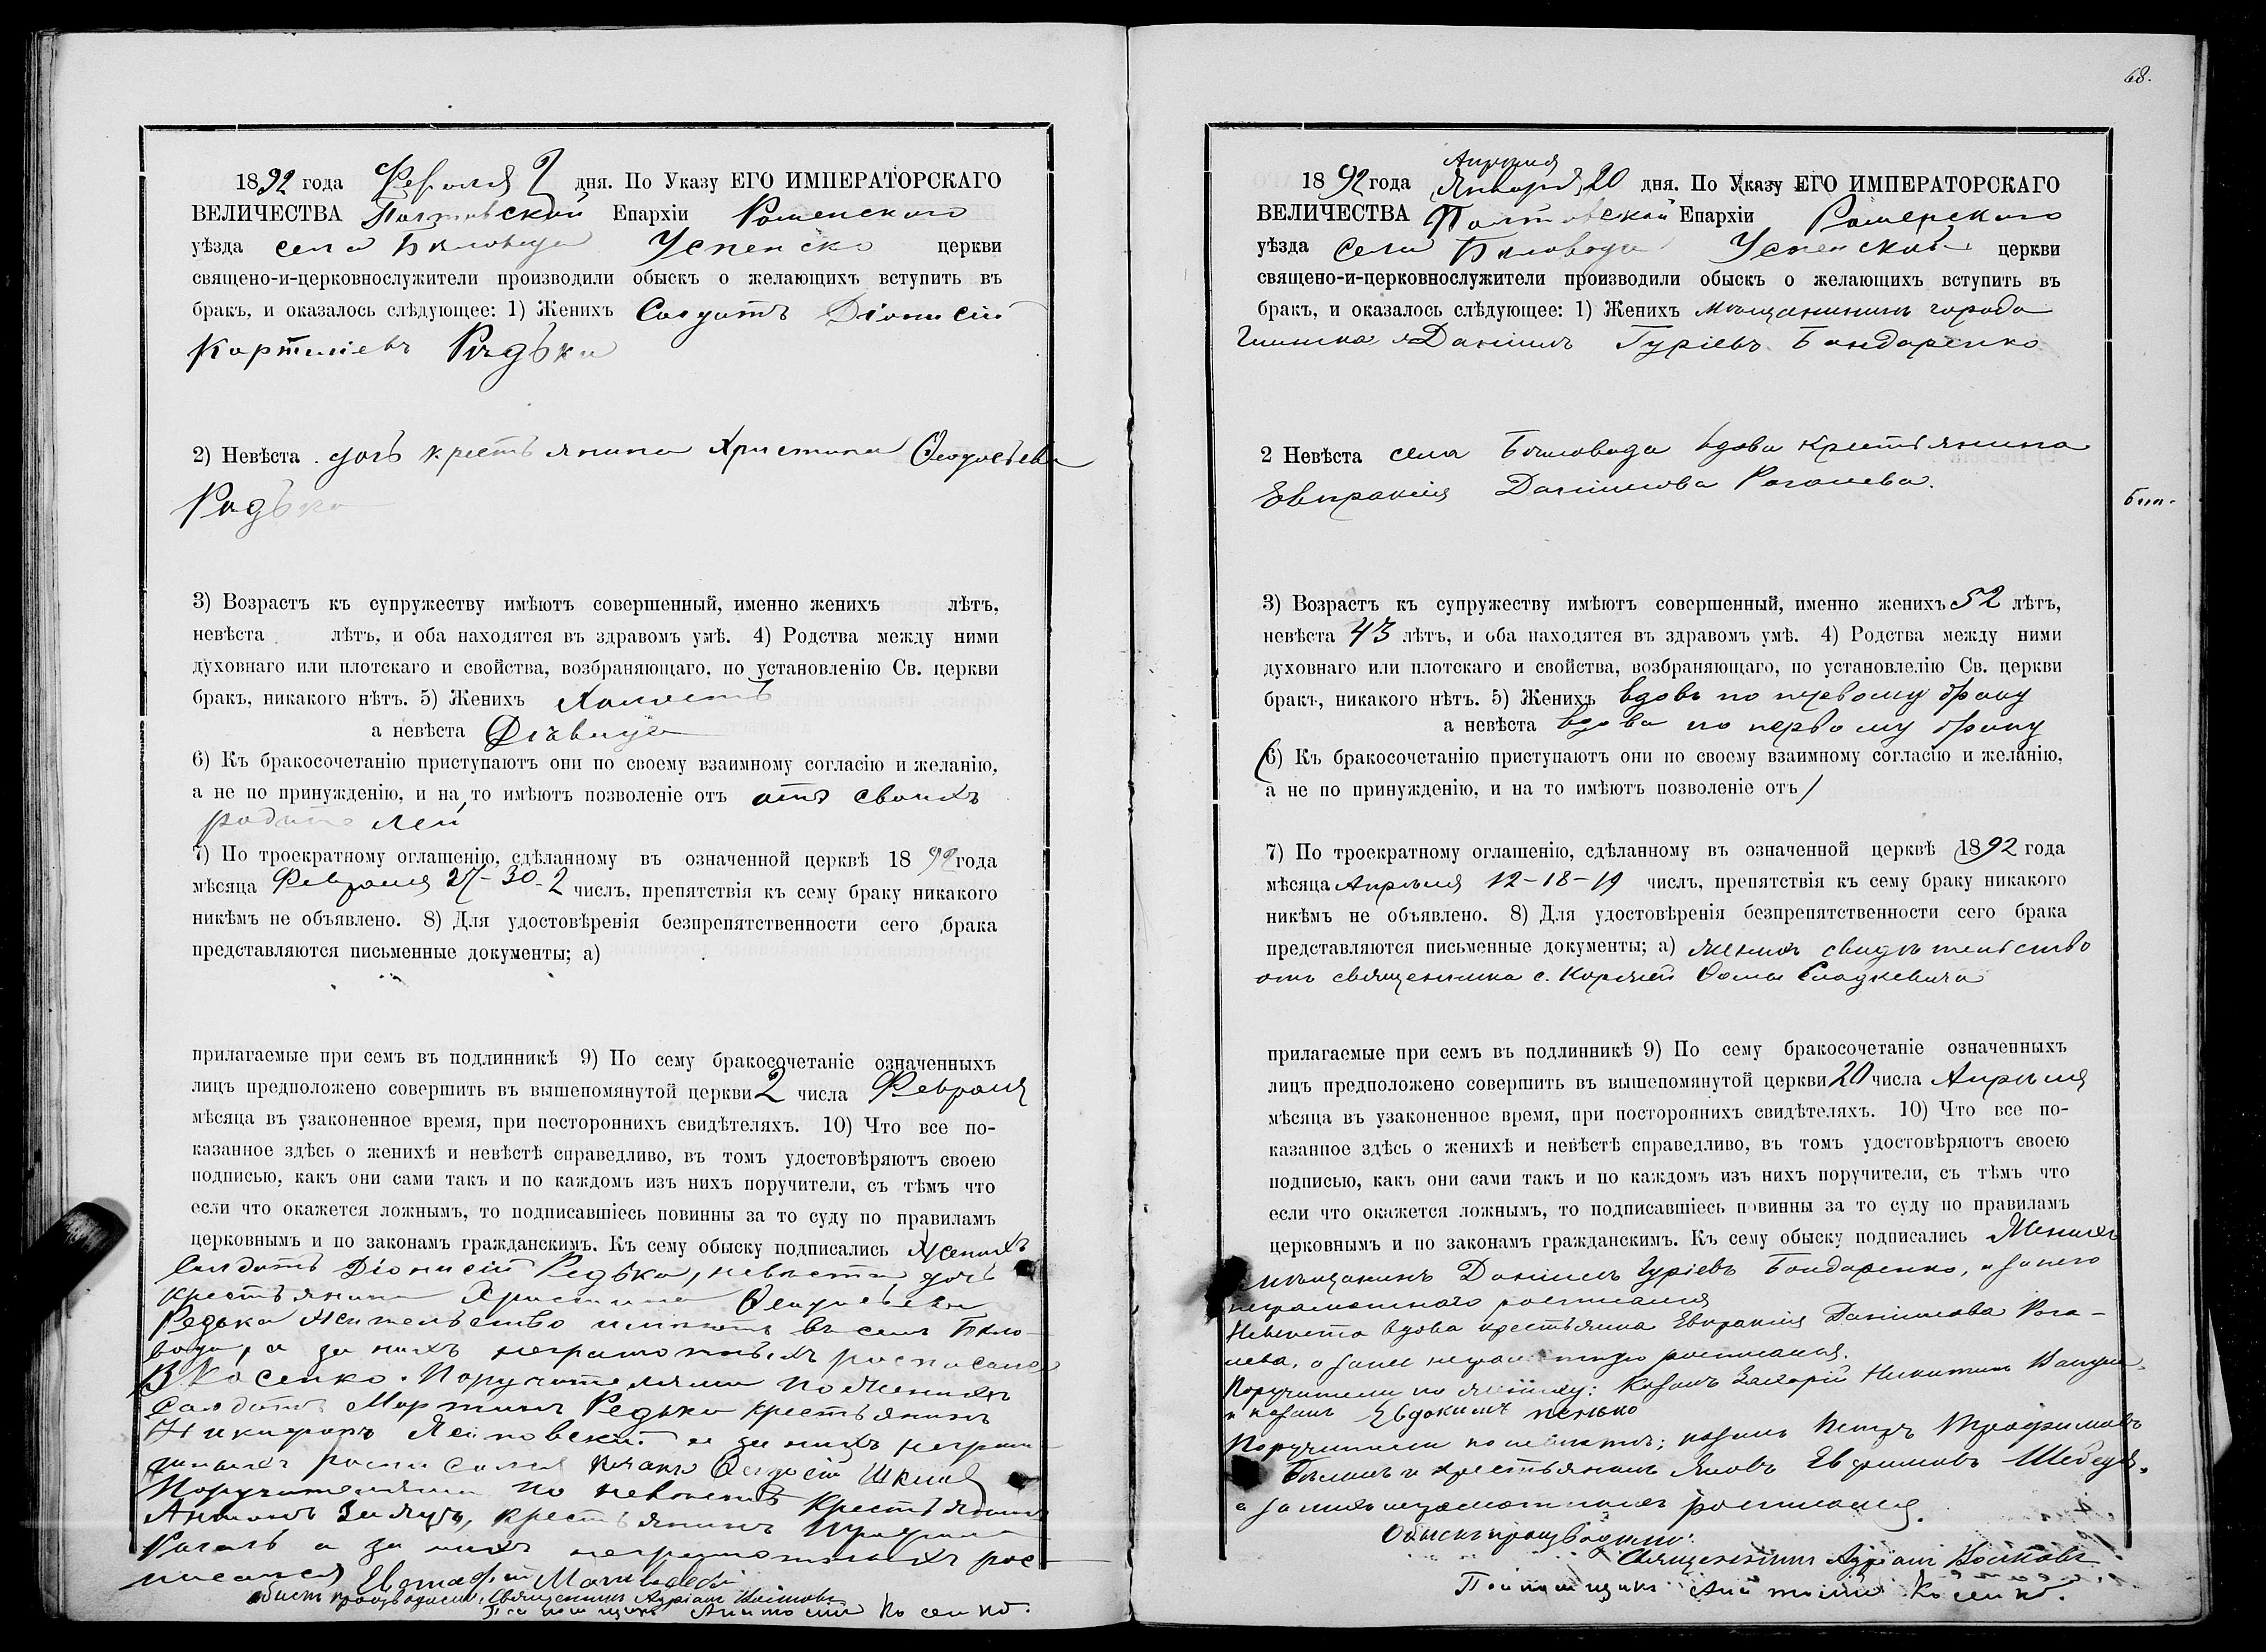 68.
1892 года Февраля 2 дня. По Указу ЕГО ИМПЕРАТОРСКАГО
ВЕЛИЧЕСТВА Полтавской Епархіи Роменскаго
уѣзда села Бѣловода Успенско церкви
священо-и-церковнослужители производили обыскъ о желающихъ вступить въ
бракъ, и оказалось слѣдующее: 1) Женихъ Солдатъ Діонисій
Рѣдька
2) Невѣста дочь крестьянина Христина Ѳеодосьева
Редько
3) Возрастъ къ супружеству имѣютъ совершенный, именно женихъ лѣтъ,
невѣста лѣтъ, и оба находятся въ здравомъ умѣ. 4) Родства между ними
духовнаго или плотскаго и свойства, возбраняющаго, по установленію Св. церкви
бракъ, никакого нѣтъ. 5) Женихъ Холостъ
а невѣста Дѣвица
6) Къ бракосочетанію приступаютъ они по своему взаимному согласію и желанію,
а не по принужденію, и на то имѣютъ позволеніе отъ отъ своихъ
родителей
7) По троекратному оглашенію, сдѣланному въ означенной церквѣ 1892 года
мѣсяца Февраля 27-30-2 числъ, препятствія къ сему браку никакого
никѣмъ не объявлено. 8) Для удостовѣренія безпрепятственности сего брака
представляются письменные документы; а)
прилагаемые при семъ въ подлинникѣ 9) По сему бракосочетаніе означенныхъ
лицъ предположено совершить въ вышепомянутой церкви 2 числа Февраля
мѣсяца въ узаконенное время, при постороннихъ свидѣтеляхъ. 10) Что все по-
казанное здѣсь о женихѣ и невѣстѣ справедливо, въ томъ удостовѣряютъ своею
подписью, какъ они сами такъ и по каждомъ изъ нихъ поручители, съ тѣмъ что
если что окажется ложнымъ, то подписавшіесь повинны за то суду по правиламъ
церковнымъ и по законамъ гражданскимъ. Къ сему обыску подписались Женихъ
Солдатъ Діонисій Редька, невѣста дочь
крестьянина Христина Ѳеодосьева
Редька жительство имѣютъ въ селѣ Бѣло-
вода, а за нихъ неграмотныхъ росписался
В Косенко. Поручителями по женихѣ
Солдатъ Мартинъ Редька крестьянинъ
Никифоръ а за нихъ неграм-
отныхъ росписался Ѳеодосій
Поручителями по невѣстѣ Крестьянинъ
Антонъ крестьянинъ
Рогаль а за нихъ неграмотныхъ рос-
писался Евстафій
обыскъ производили: Священникъ Адріанъ
Антоній Косенко.
Апрѣля
1892 года Января 20 дня. По Указу ЕГО ИМПЕРАТОРСКАГО
ВЕЛИЧЕСТВА Полтавской Епархіи Роменскаго
уѣзда села Бѣловода Успенской церкви
священо-и-церковнослужители производили обыскъ о желающихъ вступить въ
бракъ, и оказалось слѣдующее: 1) Женихъ мѣщанинъ города
Даніилъ Гуріевъ Бондаренко
2 Невѣста села Бѣловода вдова крестьянина
Евпраксія Даніилова Рогалева.
3) Возрастъ къ супружеству имѣютъ совершенный, именно женихъ 52 лѣтъ,
невѣста 43 лѣтъ, и оба находятся въ здравомъ умѣ. 4) Родства между ними
духовнаго или плотскаго и свойства, возбраняющаго, по установлелію Св. церкви
бракъ, никакого нѣтъ. 5) Женихъ вдовъ по первому браку
а невѣста вдова по первому браку
6) Къ бракосочетанію приступаютъ они по своему взаимному согласію и желанію,
а не по принужденію, и на то имѣютъ позволеніе отъ
7) По троекратному оглашенію, сдѣланному въ означенной церквѣ 1892 года
мѣсяца Апрѣля 12-18-19 числъ, препятствія къ сему браку никакого
никѣмъ не объявлено. 8) Для удостовѣренія безпрепятственности сего брака
представляются письменные документы; а) женихъ свидѣтельство
отъ священника с. Ѳомы Сладкевича
прилагаемые при семъ въ подлинникѣ 9) По сему бракосочетаніе означенныхъ
лицъ предположено совершить въ вышепомянутой церкви 20 числа Апрѣля
мѣсяца въ узаконенное время, при постороннихъ свидѣтеляхъ. 10) Что все по-
казанное здѣсь о женихѣ и невѣстѣ справедливо, въ томъ удостовѣряютъ своею
подписью, какъ они сами такъ и по каждомъ изъ нихъ поручители, съ тѣмъ что
если что окажется ложнымъ, то подписавшіесь повинны за то суду по правиламъ
церковнымъ и по законамъ гражданскимъ. Къ сему обыску подписались Женихъ
мѣщанинъ Даніилъ Гуріевъ Бондаренко, а за него
неграмотнаго росписался
Невѣста вдова крестьянина Евпраксія Даніилова Рога-
лева, а за нее неграмотную росписался.
Поручители по женихѣ: Козакъ Захарій Никитинъ
и козакъ Евдокимъ Пенько
Поручители по невѣстѣ: козакъ Петръ Трофимовъ
и крестьянинъ Яковъ Евфимовъ
а за нихъ неграмотныхъ росписался.
Обыскъ производили:
Священникъ Адріанъ
Антоній Косенко.